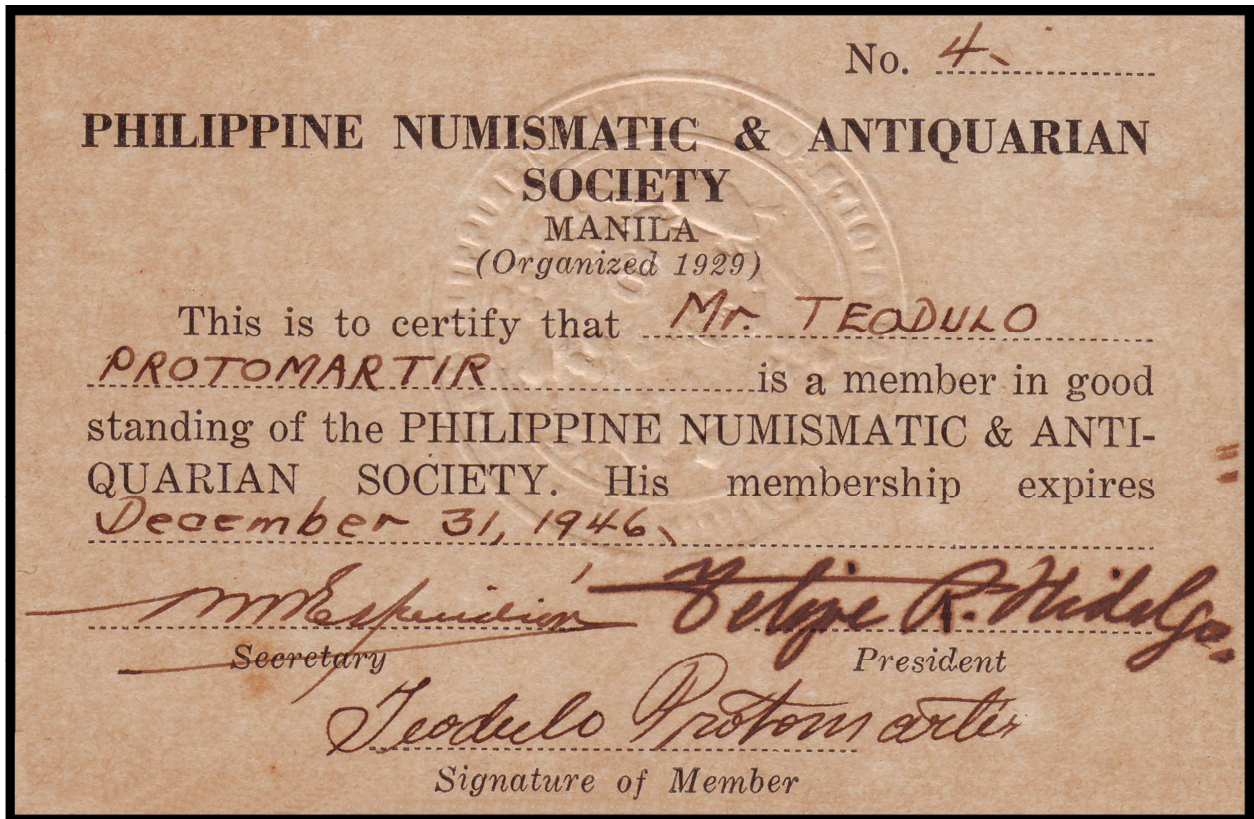 No. 4.
PHILIPPINE NUMISMATIC & ANTIQUARIAN
SOCIETY
MANILA
(Organized 1929)
This is to certify that Mr. TEODULO
PROTOMARTIR is a member in good
standing of the PHILIPPINE NUMISMATIC & ANTI-
QUARIAN SOCIETY. His membership expires
December 31, 1946.
Felipe R. Hidalgo
Secretary President
Teodulo Protomartir
Signature of Member